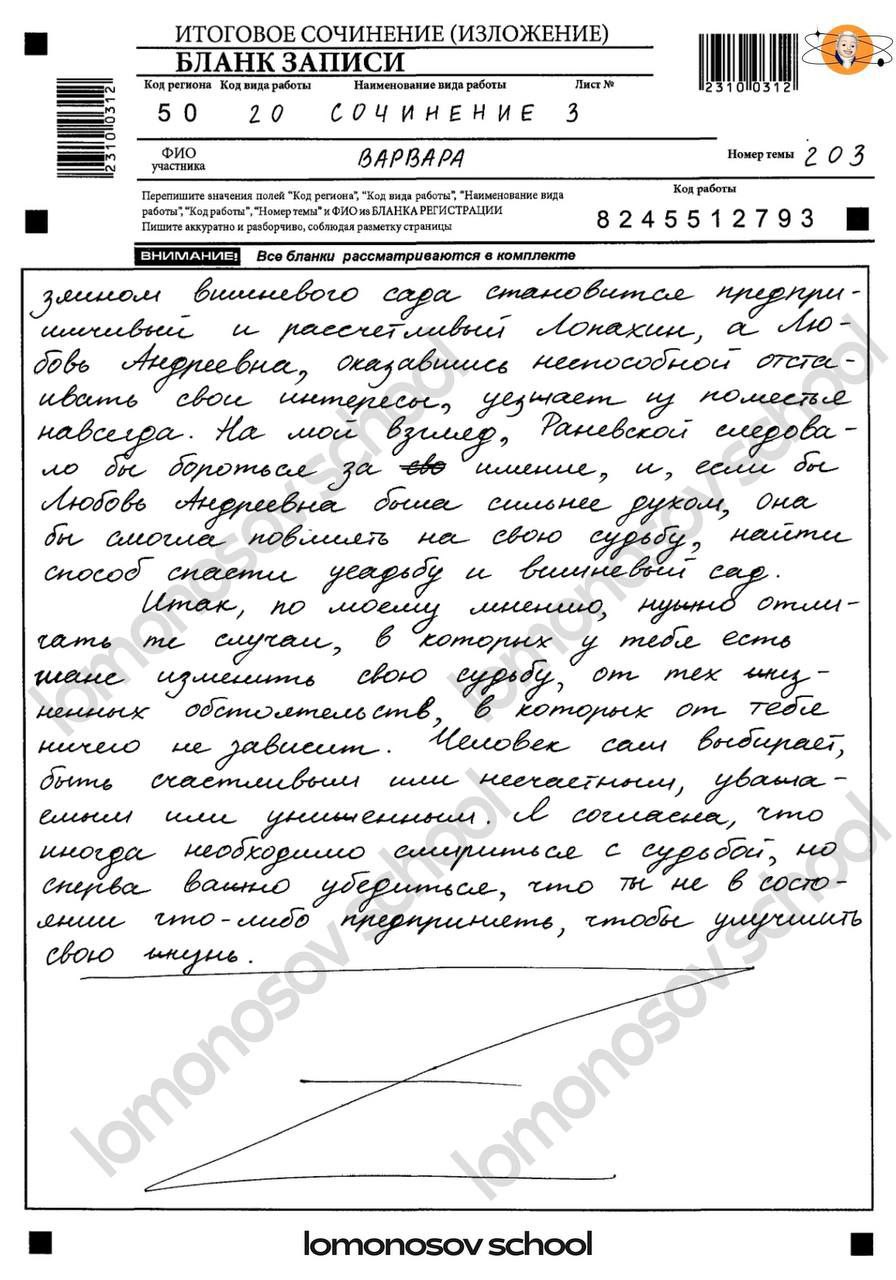 ИТОГОВОЕ СОЧИНЕНИЕ (ИЗЛОЖЕНИЕ)
БЛАНК ЗАПИСИ
2310 0312
2310 0312
Код региона Код вида работы Наименование вида работы Лист №
50 20 СОЧИНЕНИЕ 3
ФИО
участника
ВАРВАРА
Номер темы 203
Перепишите значения полей "Код региона", "Код вида работы", "Наименование вида
работы", "Код работы", "Номер темы" и ФИО из БЛАНКА РЕГИСТРАЦИИ
Пишите аккуратно и разборчиво, соблюдая разметку страницы
Код работы
8245512793
ВНИМАНИЕ! Все бланки рассматриваются в комплекте
зяином вишневого сада становится предпри-
имчивый и рассчётливый Лопахин, а Лю-
бовь Андреевна, оказавшись неспособной отста-
ивать свои интересы, уезжает из поместья
навсегда. На мой взгляд, Раневской следова-
ло бы бороться за сво имение, и, если бы
Любовь Андреевна была сильнее духом, она
бы смогла повлиять на свою судьбу, найти
способ спасти усадьбу и вишневый сад.
Итак, по моему мнению, нужно отли-
чать те случаи, в которых у тебя есть
шанс изменить свою судьбу, от тех жиз-
ненных обстоятельств, в которых от тебя
ничего не зависит. Человек сам выбирает,
быть счастливым или несчастным, уважа-
емым или униженным. Я согласна, что
иногда необходимо смириться с судьбой, но
сперва важно убедиться, что ты не в состо-
янии что-либо предпринять, чтобы улучшить
свою жизнь.
lomonosov school
lomonosov school
lomonosov school
lomonosov school
lomonosov school